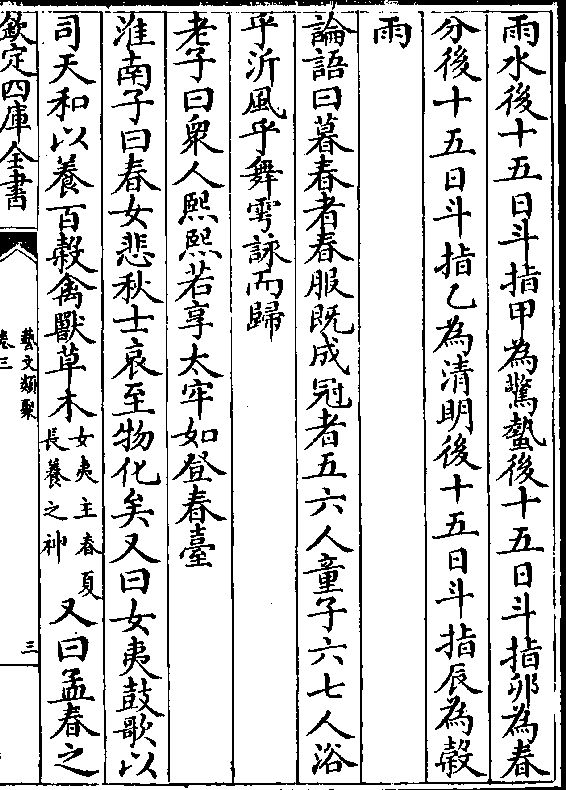 雨水後十五日斗指甲為驚蟄後十五日斗指卯為春
分後十五日斗指乙為清明後十五日斗指辰為榖
雨
論語曰暮春者春服既成冠者五六人童子六七人浴
乎沂風乎舞雩詠而歸
老子曰衆人熙熙若享太牢如登春臺
淮南子曰春女悲秋士哀至物化矣又曰女夷鼓歌以
司天和以養百榖禽獸草木女夷主春夏長養之神又曰孟春之
欽定四庫全書
藝文類聚
卷三
三